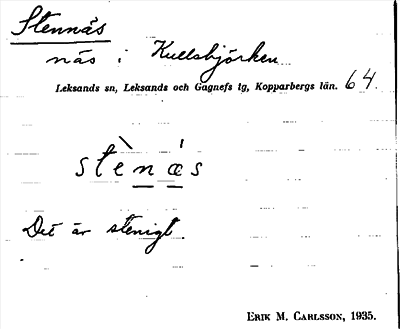 Stennäs
näs i Kullsbjörken
Leksands sn, Leksands och Gagnefs tg, Kopparbergs län. 64.
stènǽs
Det är stenigt.
ERIK M. CARLSSON, 1935.